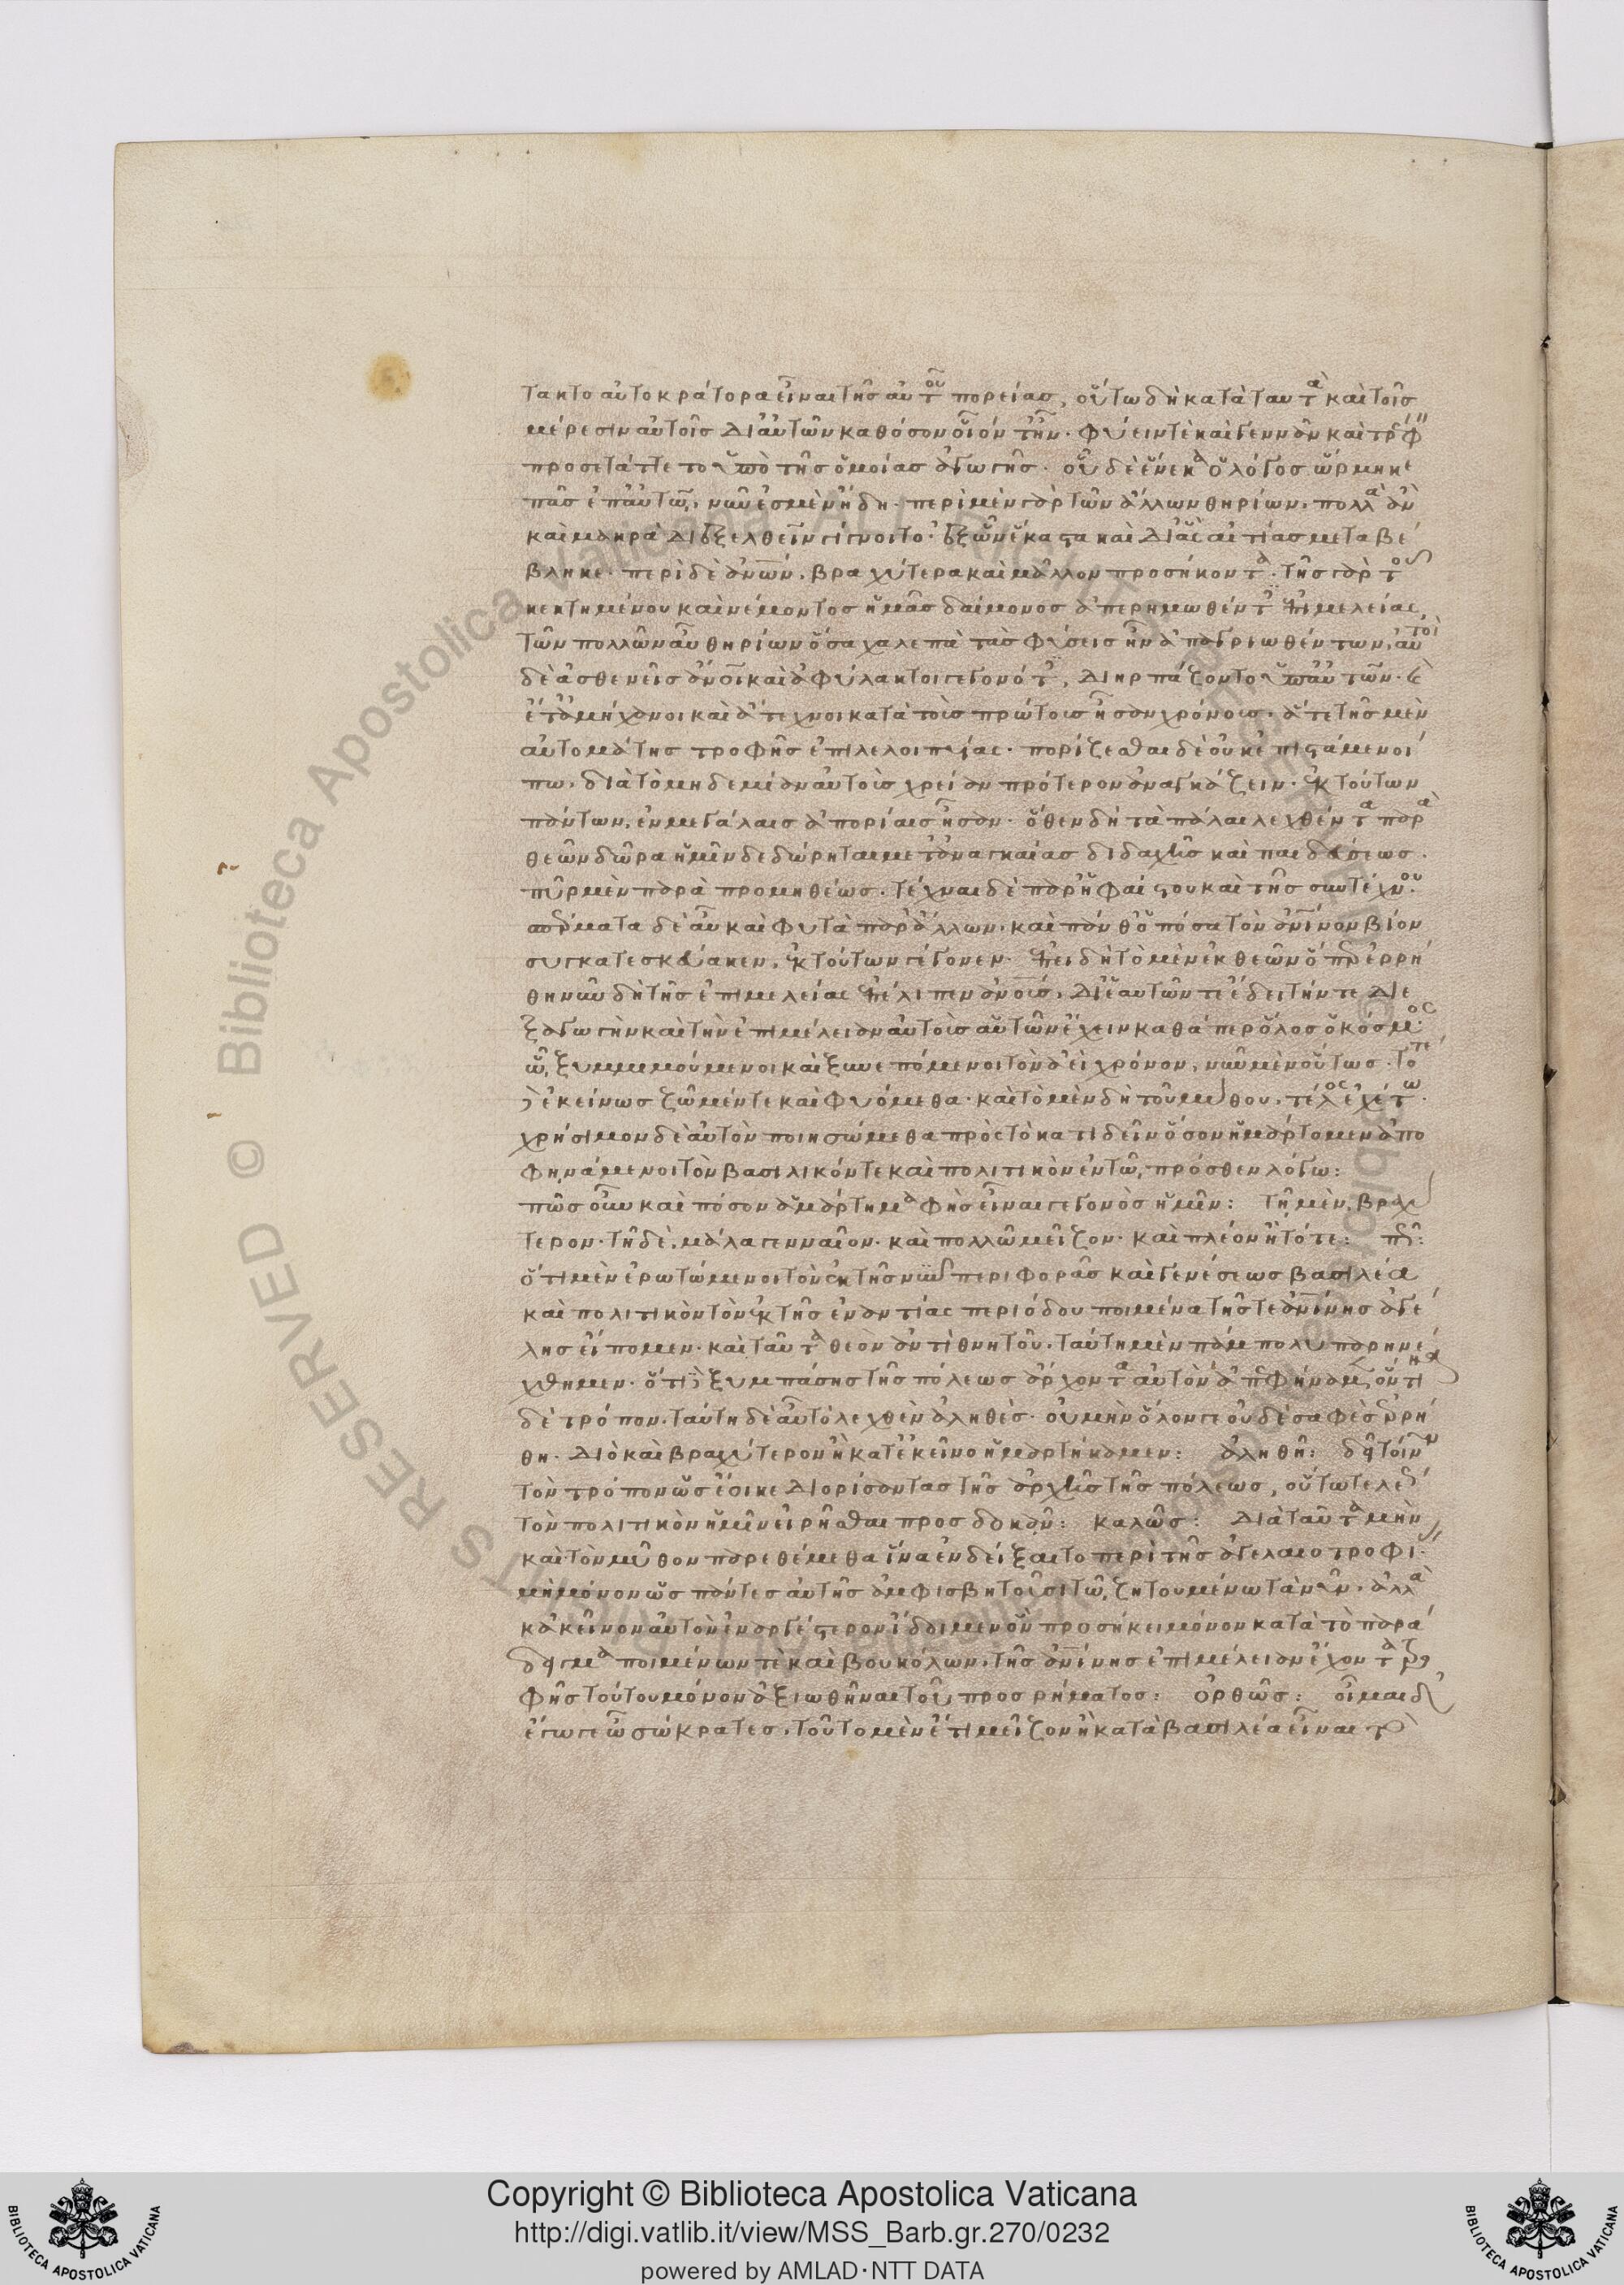 τακτο αὐτοκράτορα εἶναι τῆς αὑτοῦ πορείας, οὕτω δὴ κατὰ ταυτὰ καὶ τοῖς
μέρεσιν αὐτοῖς δι' αὐτῶν καθόσον οἷόν τ' ἦν· φύειν τὲ καὶ γεννᾶν καὶ τρέφειν
προσετάττετο ὑπὸ τῆς ὁμοίας ἀγωγῆς· οὗ δὲ ἕνεκα ὁ λόγος ὥρμηκε
πᾶς ἐπ' αὐτῷ, νῦν ἐσμὲν ἤδη· περὶ μὲν γὰρ τῶν ἄλλων θηρίων, πολλὰ ἂν
καὶ μακρὰ διεξελθεῖν γίγνοιτο· ἐξ ὧν ἕκαστα καὶ δι' ἃς αἰτίας μεταβέ
βληκε· περὶ δὲ ἀνθρώπων, βραχύτερα καὶ μᾶλλον προσήκοντα· τῆς γὰρ τοῦ
κεκτημένου καὶ νέμοντος ἡμᾶς δαίμονος ἀπερημωθέντες ἐπιμελείας,
τῶν πολλῶν αὖ θηρίων ὅσα χαλεπὰ τὰς φύσεις ἦν ἀπαγριωθέντων, αὐτοὶ
δὲ ἀσθενεῖς ἄνθρωποι καὶ ἀφύλακτοι γεγονότες, διηρπάζοντο ὑπ' αὐτῶν· καὶ
ἔτ' ἀμήχανοι καὶ ἄτεχνοι κατὰ τοὺς πρώτους ἦσαν χρόνους· ἅτε τῆς μὲν
αὐτομάτης τροφῆς ἐπιλελοιπυίας· πορίζεσθαι δὲ οὐκ ἐπιστάμενοί
πω, διὰ τὸ μηδεμίαν αὐτοὺς χρείαν πρότερον ἀναγκάζειν· ἐκ τούτων
πάντων, ἐν μεγάλαις ἀπορίαις ἦσαν· ὅθεν δὴ τὰ πάλαι λεχθέντα παρὰ
θεῶν δῶρα ἡμῖν δεδώρηται μετ' ἀναγκαίας διδαχῆς καὶ παιδεύσεως·
πῦρ μὲν παρὰ προμηθέως· τέχναι δὲ παρ' ἡφαίστου καὶ τῆς συντέχνου·
σπέρματα δὲ αὖ καὶ φυτὰ παρ' ἄλλων· καὶ πάνθ' ὁπόσα τὸν ἀνθρώπινον βίον
συγκατεσκεύακεν, ἐκ τούτων γέγονεν· ἐπειδὴ τὸ μὲν ἐκ θεῶν ὅπερ ἐρρή
θη νῦν δὴ τῆς ἐπιμελείας ἐπέλιπεν ἀνθρώπους, δι' ἑαυτῶν τε ἔδει τήν τε διε
ξαγωγὴν καὶ τὴν ἐπιμέλειαν αὐτοὺς αὑτῶν ἔχειν καθάπερ ὅλος ὁ κόσμος·
ᾧ, ξυμμιμούμενοι καὶ ξυνεπόμενοι τὸν ἀεὶ χρόνον, νῦν μὲν οὕτως· τοτὲ
δ' ἐκείνως ζῶμέν τε καὶ φυόμεθα· καὶ τὸ μὲν δὴ τοῦ μύθου, τέλος ἐχέτω·
χρήσιμον δὲ αὐτὸν ποιησώμεθα πρὸς τὸ κατιδεῖν ὅσον ἡμάρτομεν ἀπο
φηνάμενοι τὸν βασιλικόν τε καὶ πολιτικὸν ἐν τῷ πρόσθεν λόγω:
πῶς οὖν καὶ πόσον ἁμάρτημα φὴς εἶναι γεγονὸς ἡμῖν: τῇ μὲν, βραχύ
τερον· τῇ δὲ, μάλα γενναῖον· καὶ πολλῶ μεῖζον· καὶ πλέον ἢ τότε: πῶς:
ὅτι μὲν ἐρωτώμενοι τὸν ἐκ τῆς νῦν περιφορᾶς καὶ γενέσεως βασιλέα
καὶ πολιτικὸν τὸν ἐκ τῆς ἐναντίας περιόδου ποιμένα τῆς τε ἀνθρωπίνης ἀγέ
λης εἴπομεν· καὶ ταῦτα θεὸν ἀντὶ θνητοῦ, ταύτη μὲν πάμπολυ παρηνέ
χθημεν· ὅτι δὲ ξυμπάσης τῆς πόλεως ἄρχοντα αὐτὸν ἀπεφήναμεν, ὅντινα
δὲ τρόπον, ταύτη δὲ αὖ τὸ λεχθὲν ἀληθὲς· οὐ μὴν ὅλον γε οὐδὲ σαφὲς ἐρρή
θη· διὸ καὶ βραχύτερον ἢ κατ' ἐκεῖνο ἡμαρτήκαμεν: ἀληθῆ: δεῖ τοίνυν
τὸν τρόπον ὡς ἔοικε διορίσαντας τῆς ἀρχῆς τῆς πόλεως, οὕτω τελέως
τὸν πολιτικὸν ἡμῖν εἰρῆσθαι προσδοκᾶν: καλῶς: διὰ ταῦτα μὴν
καὶ τὸν μῦθον παρεθέμεθα ἵνα ἐνδείξαιτο περὶ τῆς ἀγελαιοτροφίας·
μὴ μόνον ὡς πάντες αὐτῆς ἀμφισβητοῦσι τῷ ζητουμένω τὰ νῦν, ἀλλὰ
κἀκεῖνον αὐτὸν ἐναργέστερον ἴδοιμεν ὃν προσήκει μόνον κατὰ τὸ παρά
δειγμα ποιμένων τὲ καὶ βουκόλων, τῆς ἀνθρωπίνης ἐπιμέλειαν ἔχοντα τρο
φῆς τούτου μόνον ἀξιωθῆναι τοῦ προσρήματος: ὀρθῶς: οἶμαι δ'
ἔγωγε ὦ σώκρατες, τοῦτο μὲν ἔτι μεῖζον ἢ κατὰ βασιλέα εἶναι τὸ
Copyright © Biblioteca Apostolica Vaticana
http://digi.vatlib.it/view/MSS_Barb.gr.270/0232
powered by AMLAD·NTT DATA